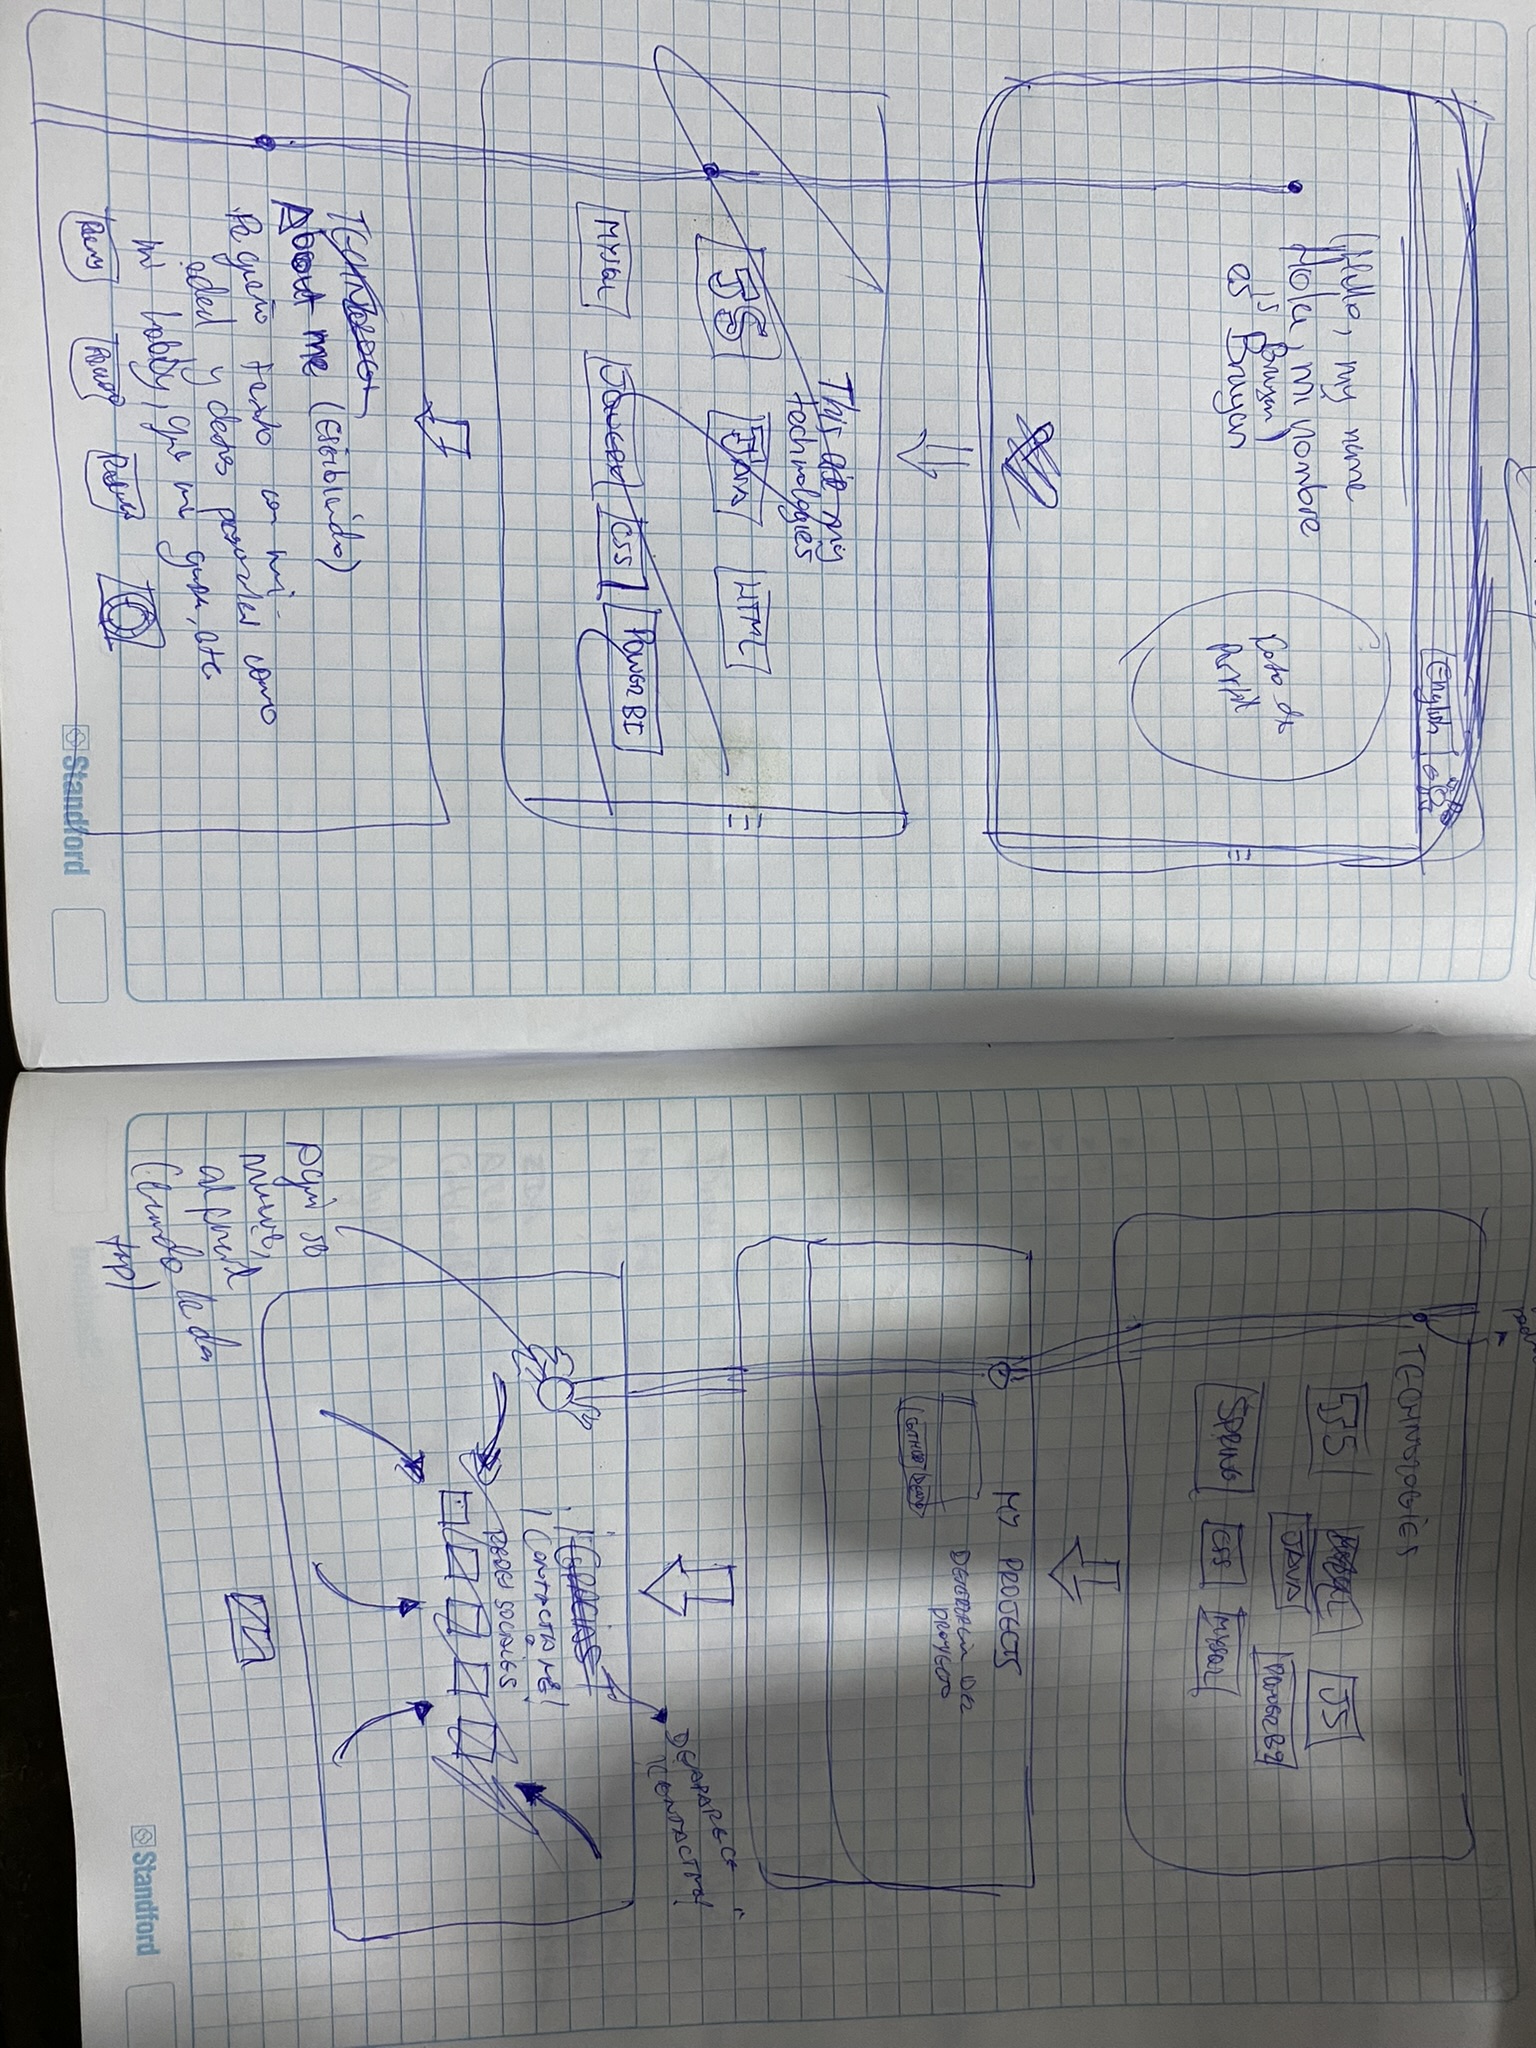 English
(Hello, my name
Hola, mi nombre
is Brayan)
es Brayan
Foto de
Perfil
This are my
technologies
JS
JAVA
HTML
MYSQL
JQUERY
CSS
POWER BI
TECHNOLOGI
About me (Escribiendo)
Pequeño texto con mi
edad y datos personales como
mi hobby, que me gusta, etc
Standford
TECHNOLOGIES
JS
JAVA
POWER BI
SPRING
CSS
MYSQL
MY PROJECTS
DESCRIPCIÓN DEL
PROYECTO
GITHUB
DEMO
DESAPARECE
CONTACTME!
¡GRACIAS!
¡CONTACTAME!
REDES SOCIALES
Aqui se
mueve,
al final
(cuando le da
tap)
Standford